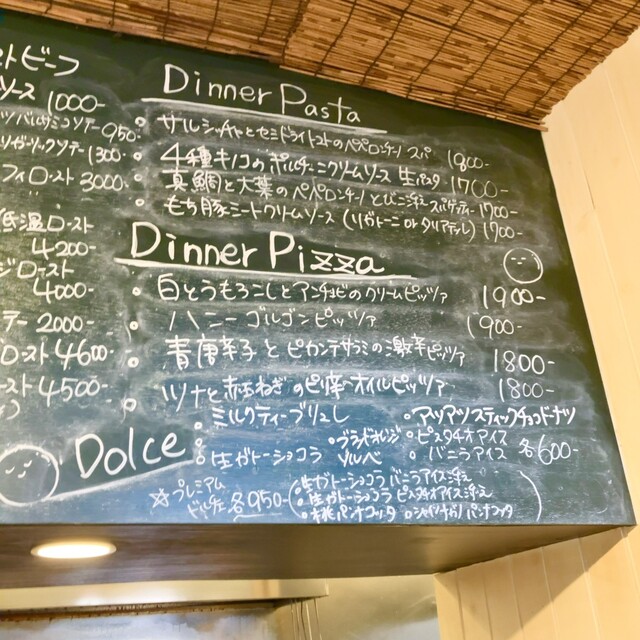 ストビーフ
ソース 1000-
バルサミコソテー 950-
ガーリックソテー 1300-
ロースト 3000-
低温ロースト
4200-
ロースト
4000-
テー 2000-
ロースト 4600-
ースト 4500-
Dinner Pasta
サルシッチャとセミドライトマトのペペロンチーノ スパ 1800-
4種キノコのポルチーニクリームソース 生パスタ 1700-
真鯛と大葉のペペロンチーノ スパゲティー 1700-
もち豚ミートクリームソース (リガトーニ or タリアテッレ) 1700-
Dinner Pizza
白とうもろこしとアンチョビのクリームピッツァ 1900-
ハニーゴルゴンピッツァ 1900-
青唐辛子とピカンテサラミの激辛ピッツァ 1800-
ツナと赤玉ねぎのピリ辛オイルピッツァ 1800-
Dolce
ミルクティーブリュレ
アツアツスティックチョコドーナツ
ブラッドオレンジ ピスタチオアイス
生ガトーショコラ ソルベ バニラアイス 各600-
☆プレミアム
ドルチェ 各950-
生ガトーショコラ バニラアイス添え
生ガトーショコラ ピスタチオアイス添え
桃パンナコッタ パンナコッタ